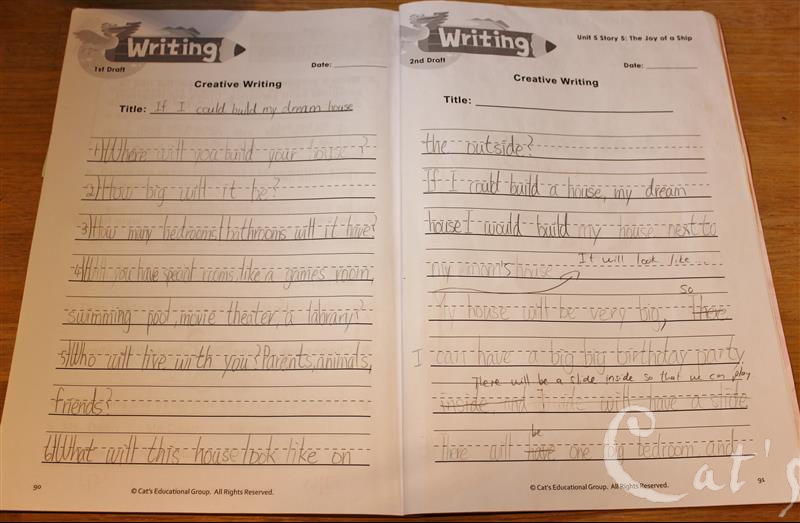 Writing
1st Draft
Date:
Creative Writing
Title: If I could build my dream house
1) Where will you build your house?
2) How big will it be?
3) How many bedrooms/bathrooms will it have?
4) Will you have special rooms, like a games room,
swimming pool, movie theater, a library?
5) Who will live with you? Parents, animals,
friends?
6) What will this house look like on
90
© Cat's Educational Group. All Rights Reserved.
Writing
Unit 5 Story 5: The Joy of a Ship
2nd Draft
Date:
Creative Writing
Title:
the outside?
If I could build a house, my dream
house I would build my house next to
It will look like...
my mom's house
so
My house will be very big, There
I can have a big big birthday party
There will be a slide inside so that we can play
inside, and I will have a slide
be
There will have one big bedroom and
© Cat's Educational Group. All Rights Reserved.
91
Cat's